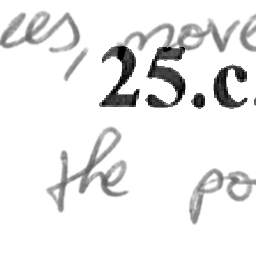 ces, move
25.c.
the po